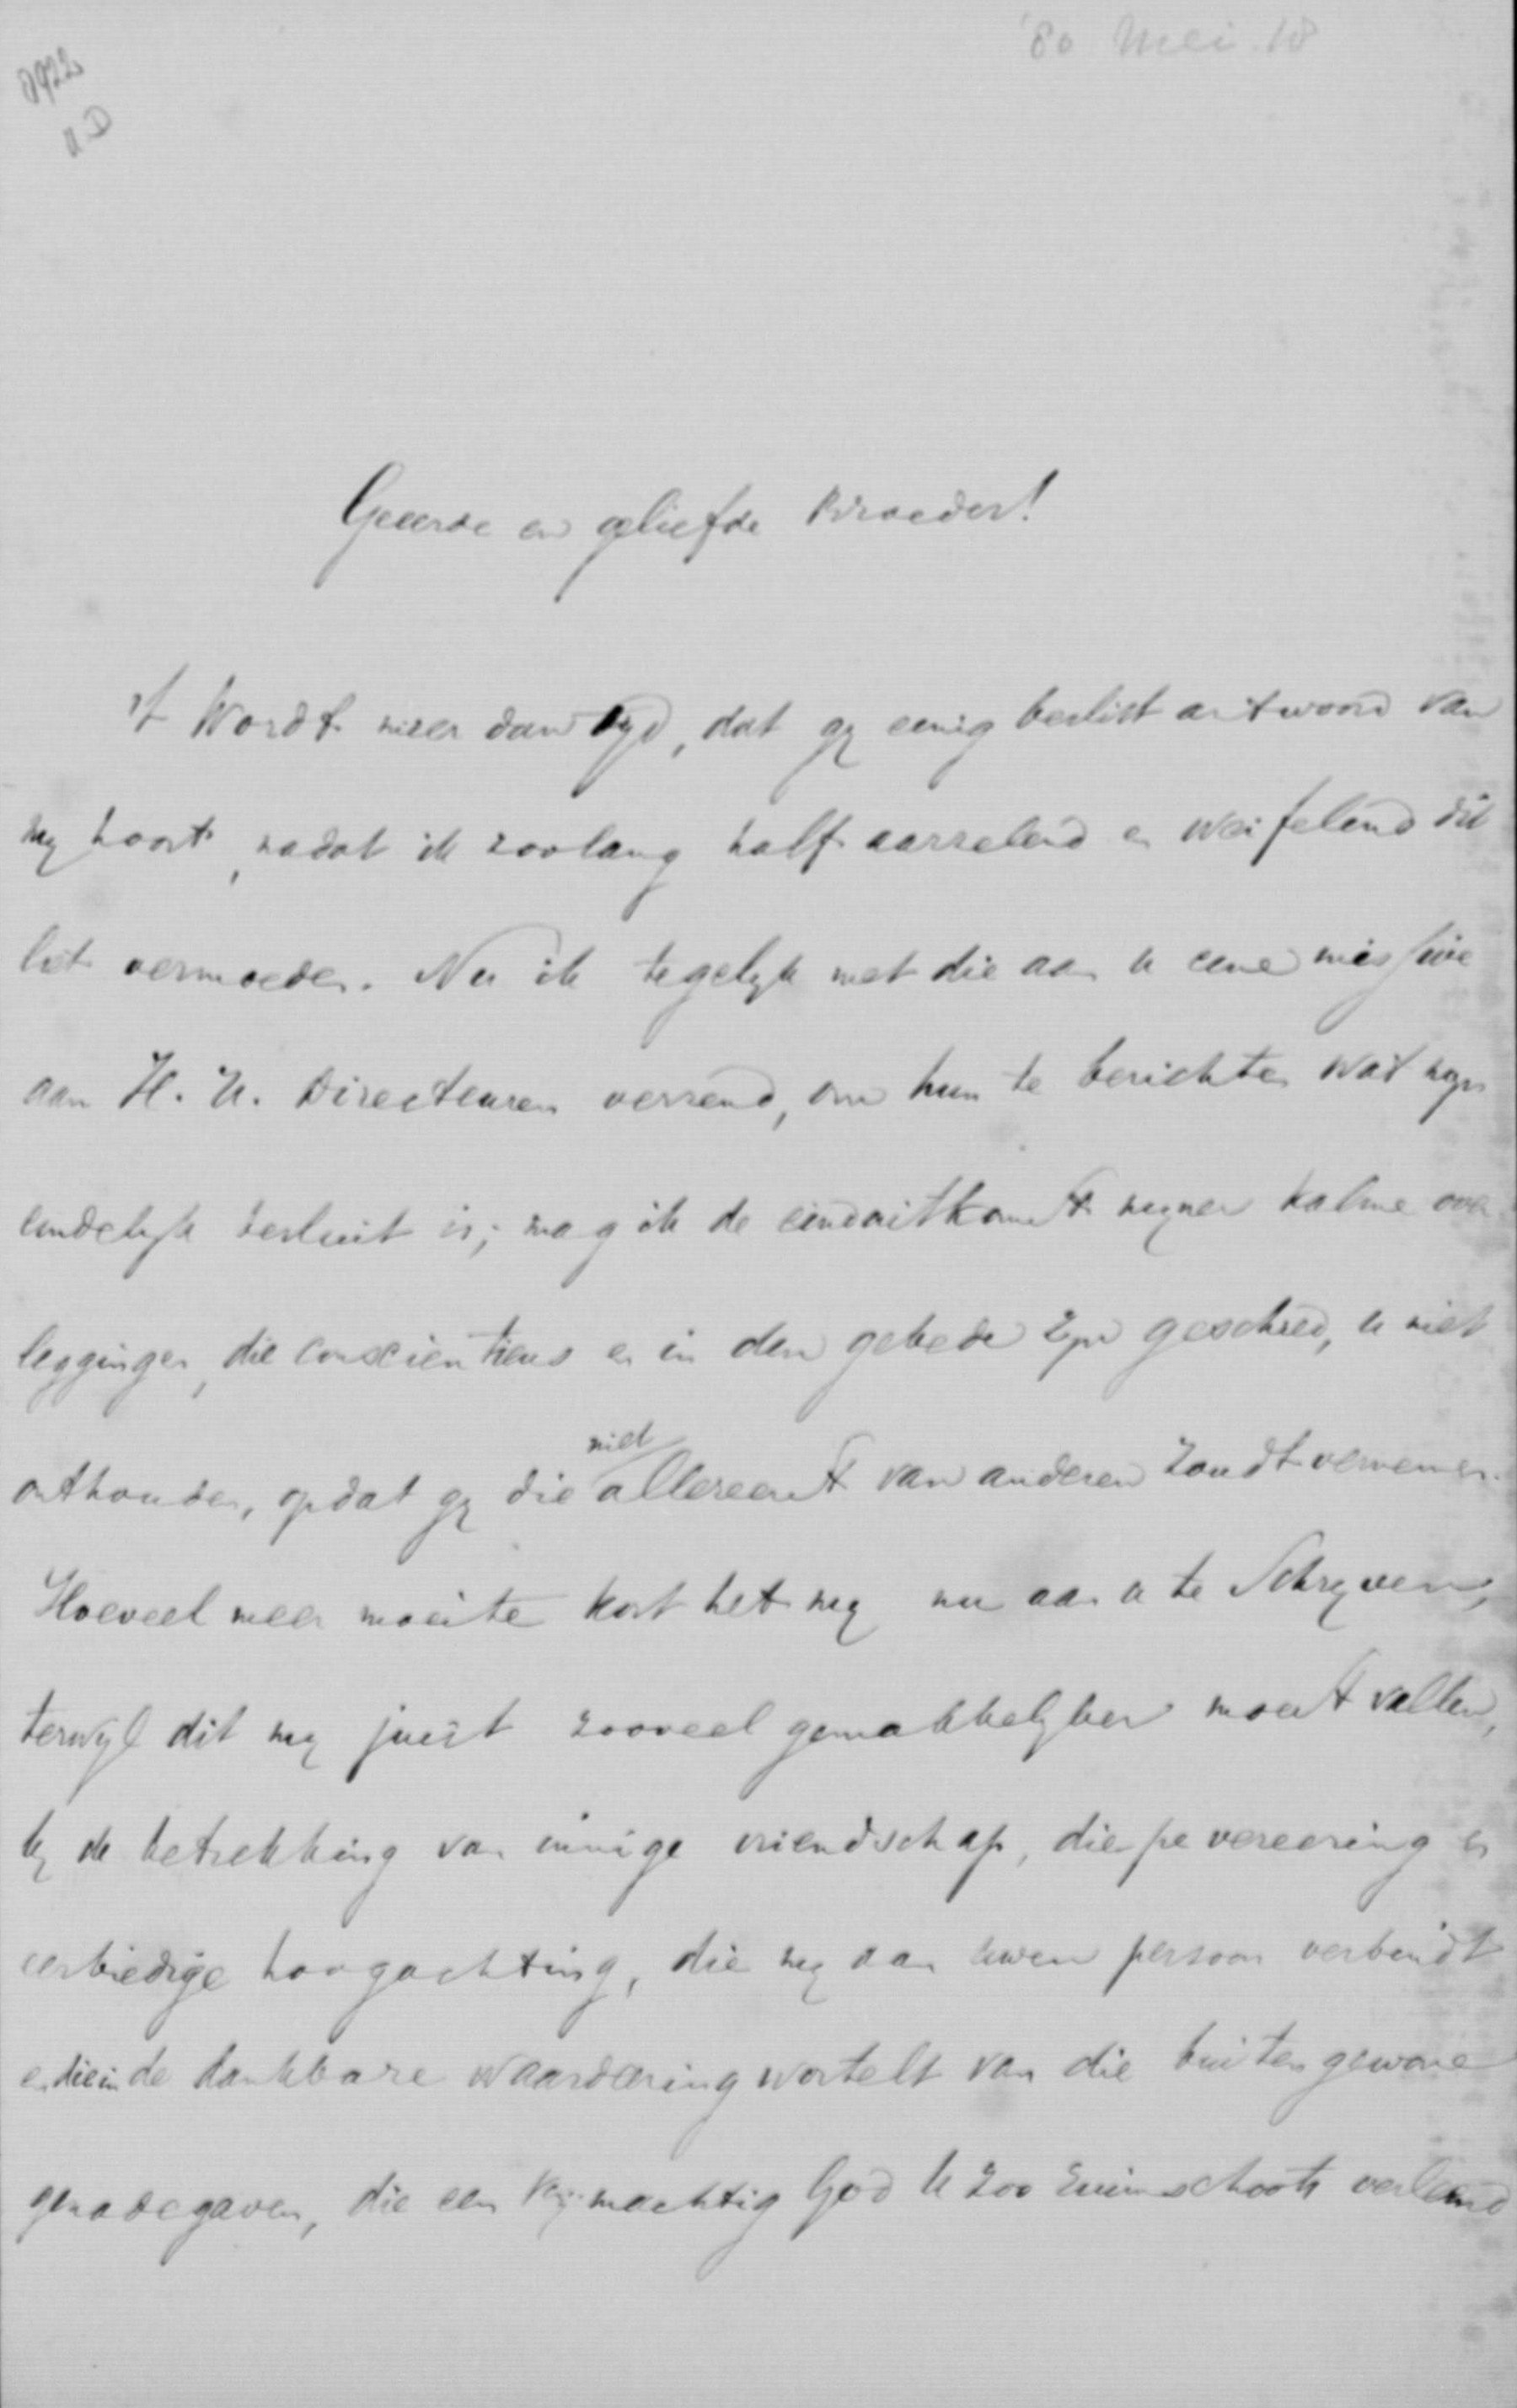 '80 Mei 18
2922
A.D
Geeerde en geliefde Broeder!
't Wordt meer dan tyd, dat gy eenig beslist antwoord van
my hoort, nadat ik zoolang half aarzelend en weifelend dit
liet vermoeden. Nu ik tegelyk met die aan u eene missive
aan H. H. Directeuren verzend, om hun te berichten wat myn
eindelyk besluit is; mag ik de einduitkomst myner kalme over
leggingen, die conscientieus en in den gebede zyn geschied, u niet
onthouden, opdat gy die niet allereerst van anderen zoudt vernemen.
Hoeveel meer moeite kost het my nu aan u te schryven,
terwyl dit my juist zooveel gemakkelyker moest vallen,
by de betrekking van innige vriendschap, diepe vereering en
eerbiedige hoogachting, die my aan uwen persoon verbindt
en die in de dankbare waardeering wortelt van die buitengewone
genadegaven, die een vrymachtig God u zoo ruimschoots verleend